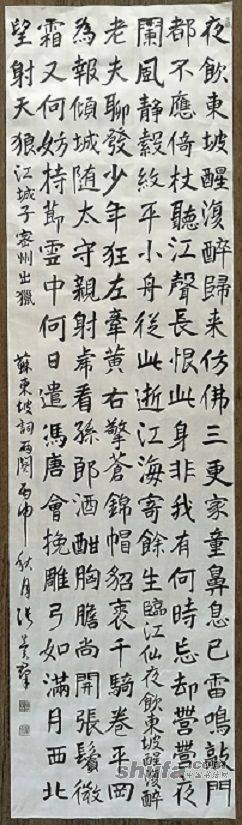 夜飲東坡醒復醉歸来仿佛三更家童鼻息已雷鳴敲門
都不應倚杖聽江聲長恨此身非我有何時忘却營營夜
闌風静縠紋平小舟從此逝江海寄餘生臨江仙夜飲東坡醒復醉
老夫聊發少年狂左牽黄右擎蒼錦帽貂裘千騎卷平岡
為報傾城随太守親射虎看孫郎酒酣胸膽尚開張鬢微
霜又何妨持節雲中何日遣馮唐會挽雕弓如滿月西北
望射天狼江城子密州出獵 蘇東坡詞两闋丙申秋月